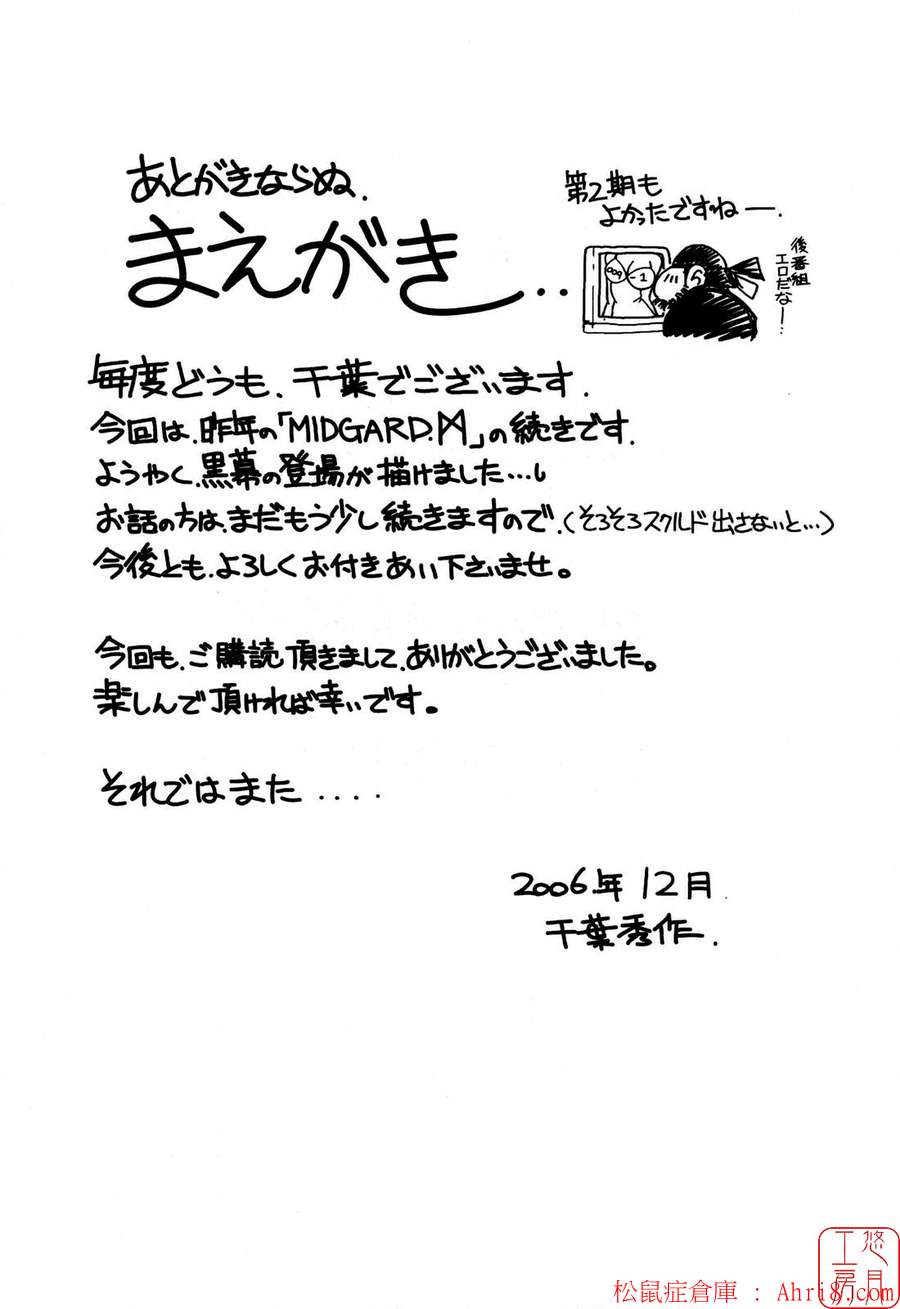 あとがきならぬ.
まえがき..
第2期も
よかったですねー.
後番組
エロだなー..
毎度どうも、千葉でございます.
今回は、昨年の「MIDGARD.ᛞ」の続きです.
ようやく、黒幕の登場が描けました…。
お話のちは、まだもう少し続きますので、(そろそろスクルド出さないと…)
今後とも、よろしくお付きあい下さいませ。
今回も、ご購読頂きまして、ありがとうございました。
楽しんで頂ければ幸いです。
それではまた....
2006年12月.
千葉秀作.
悠月
工房
松鼠症倉庫 : Ahri8.com